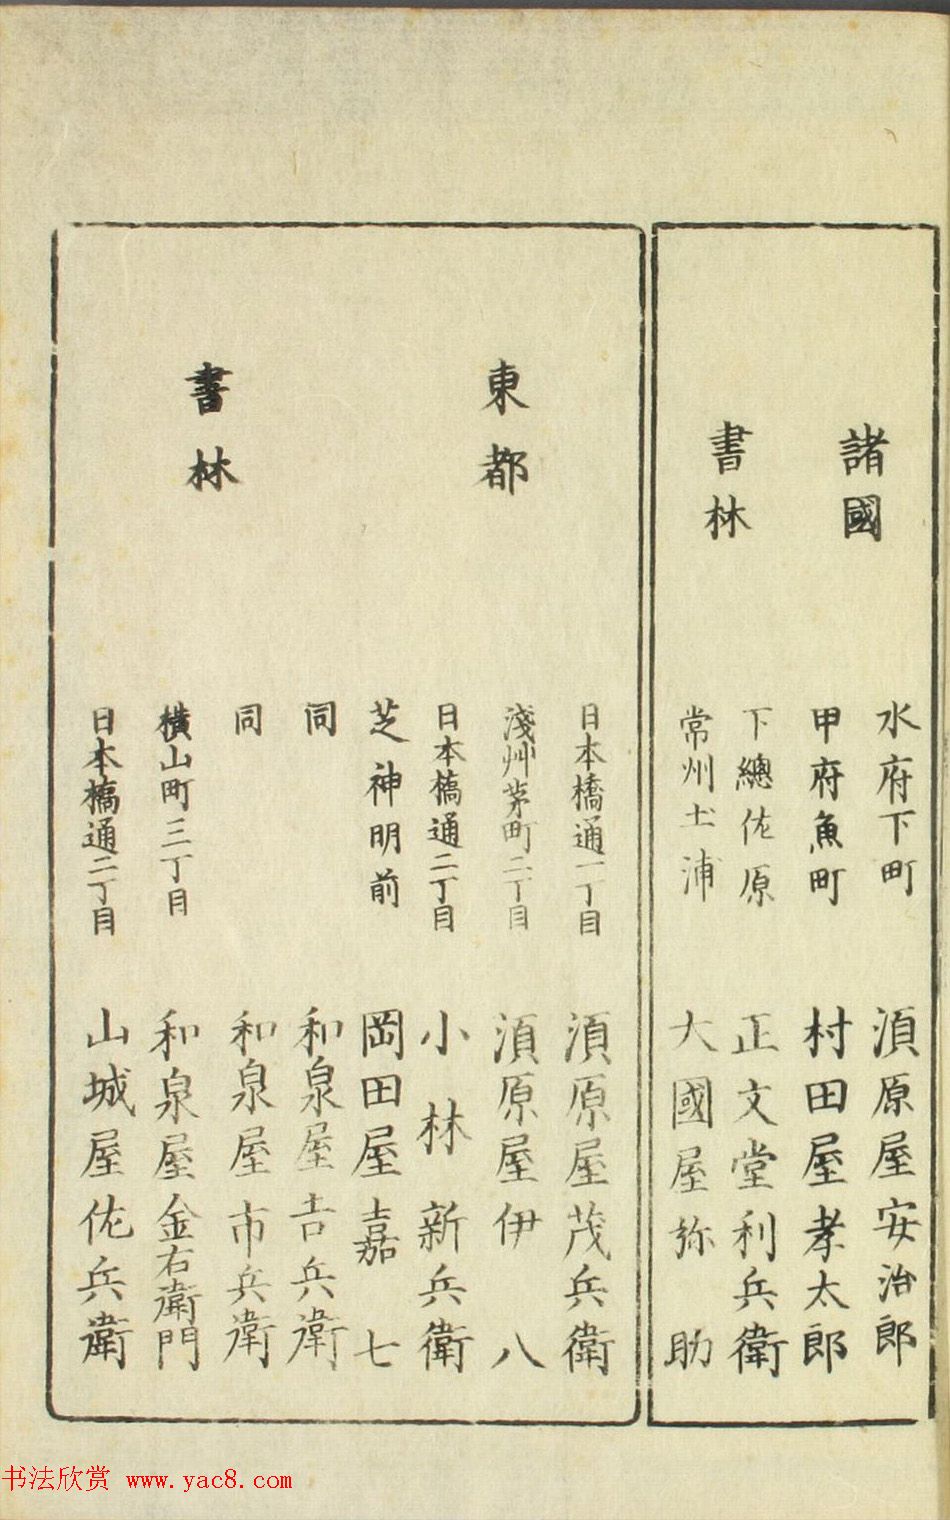 諸國
書林
水府下町 須原屋安治郎
甲府魚町 村田屋孝太郎
下總佐原 正文堂利兵衛
常州土浦 大國屋弥助
東都
書林
日本橋通一丁目 須原屋茂兵衛
淺艸茅町二丁目 須原屋伊八
日本橋通二丁目 小林新兵衛
芝神明前 岡田屋嘉七
同 和泉屋吉兵衛
同 和泉屋市兵衛
横山町三丁目 和泉屋金右衛門
日本橋通二丁目 山城屋佐兵衛
书法欣赏 www.yac8.com